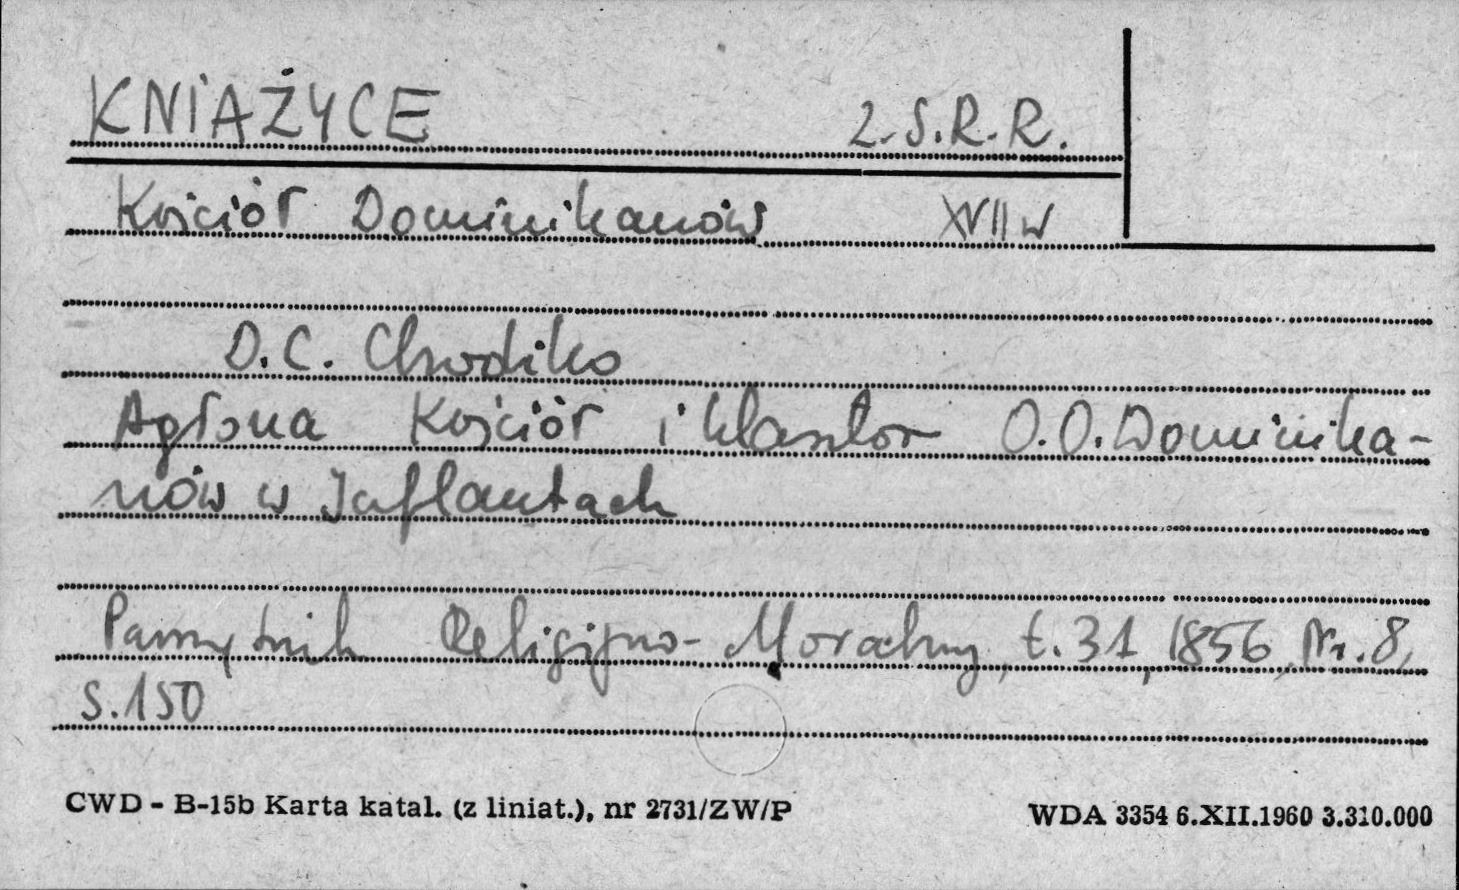 KNIAŻYCE Z.S.R.R.
Kościół Dominikanów XVII w
D.C. Chodźko
Agłona Kościół i klasztor O.O. Dominika-
nów w Inflantach
Pamiętnik Religijno-Moralny, t. 31, 1856, Nr. 8,
s. 150
CWD - B-15b Karta katal. (z liniat.), nr 2731/ZW/P WDA 3354 6.XII.1960 3.310.000